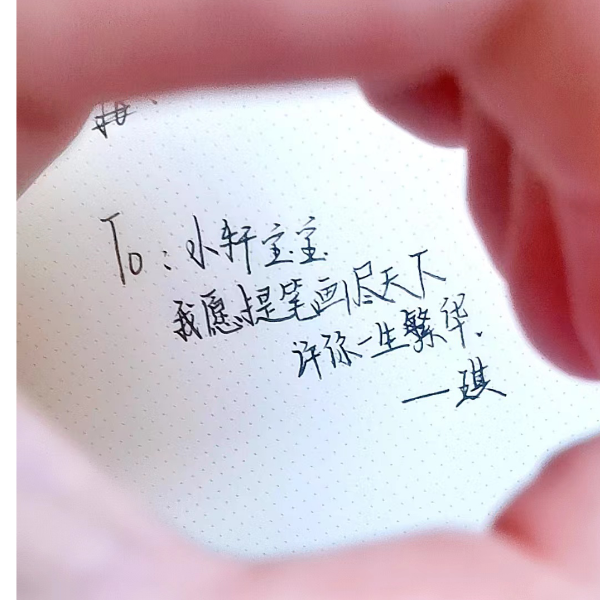 To：小轩宝宝
我愿提笔画尽天下
许你一生繁华.
—琪